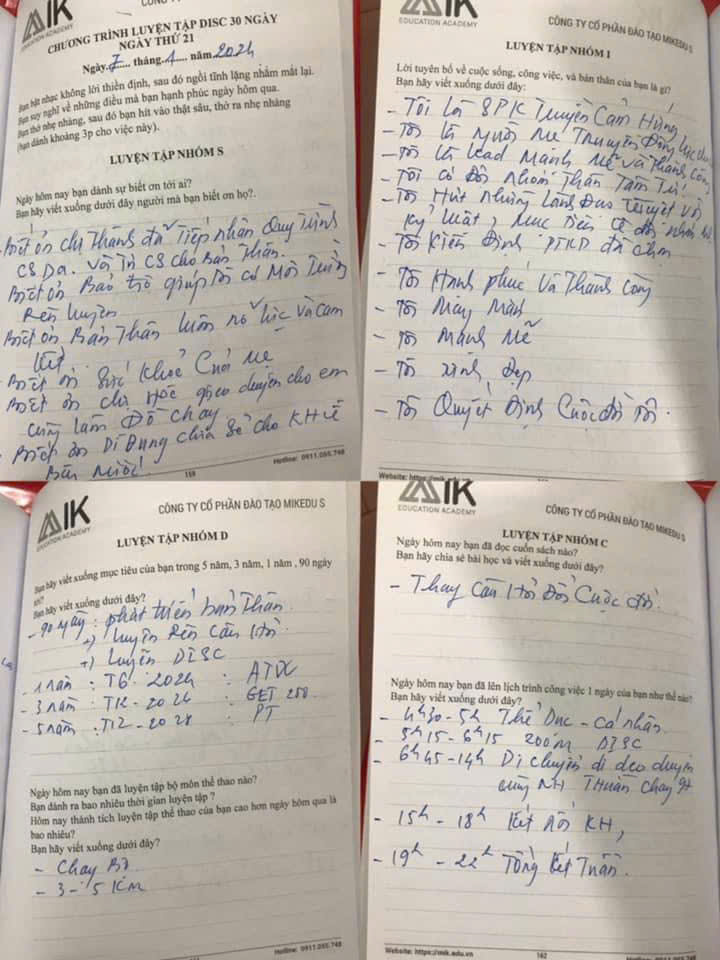 AIK
EDUCATION ACADEMY
CÔNG TY
CHƯƠNG TRÌNH LUYỆN TẬP DISC 30 NGÀY
NGÀY THỨ 21
Ngày 7 tháng 4 năm 2024
Bạn bật nhạc không lời thiền định, sau đó ngồi tĩnh lặng nhắm mắt lại.
Bạn suy nghĩ về những điều mà bạn hạnh phúc ngày hôm qua.
Bạn thở nhẹ nhàng, sau đó bạn hít vào thật sâu, thở ra nhẹ nhàng
(bạn dành khoảng 3p cho việc này).
LUYỆN TẬP NHÓM S
Ngày hôm nay bạn dành sự biết ơn tới ai?
Bạn hãy viết xuống dưới đây người mà bạn biết ơn họ?
- Biết ơn chị Thành đã Tiếp nhận Quy Trình
CS Da. Và Tri CS cho Bản Thân.
Biết ơn Bảo trợ giúp Tôi có Môi Trường
Rèn luyện
Biết ơn Bản Thân luôn nỗ lực và cam
kết
- Biết ơn Sức Khoẻ Của Mẹ
Biết ơn chị Học gieo duyên cho em
cùng làm Đồ chay
- Biết ơn Dì Dung chia Sẻ cho KH về
Bán nước!
Hotline: 0911.055.748
159
AIK
EDUCATION ACADEMY
CÔNG TY CỔ PHẦN ĐÀO TẠO MIKEDU S
LUYỆN TẬP NHÓM I
Lời tuyên bố về cuộc sống, công việc, và bản thân của bạn là gì?
Bạn hãy viết xuống dưới đây:
- Tôi là SPK Truyền Cảm Hứng
- Tôi là Người Mẹ Truyền Động lực
- Tôi là lead Mạnh Mẽ và Thành Công
- Tôi có Đội Nhóm Thân Tâm Trí
- Tôi Hút Những Lãnh Đạo Tuyệt Vời
Kỷ luật, Mục Tiêu
- Tôi Kiên Định PTKD đã chọn
- Tôi Hạnh phúc Và Thành Công
- Tôi May Mắn
- Tôi Mạnh Mẽ
- Tôi xinh Đẹp
- Tôi Quyết Định Cuộc đời Tôi.
Website: https://mik.edu.vn
AIK
EDUCATION ACADEMY
CÔNG TY CỔ PHẦN ĐÀO TẠO MIKEDU S
LUYỆN TẬP NHÓM D
Bạn hãy viết xuống mục tiêu của bạn trong 5 năm, 3 năm, 1 năm, 90 ngày
Bạn hãy viết xuống dưới đây?
- 90 Ngày: phát triển bản Thân
+) luyện Rèn Câu Hỏi.
+) luyện DISC
- 1 năm : T6 - 2024 : ATDC
- 3 năm : T12 - 2026 : GET 250
- 5 năm : T12 - 2028 : PT
Ngày hôm nay bạn đã luyện tập bộ môn thể thao nào?
Bạn dành ra bao nhiêu thời gian luyện tập ?
Hôm nay thành tích luyện tập thể thao của bạn cao hơn ngày hôm qua là
bao nhiêu?
Bạn hãy viết xuống dưới đây?
- Chạy Bộ
- 3 - 5 Km
Hotline: 0911.055.748
AIK
EDUCATION ACADEMY
CÔNG TY CỔ PHẦN ĐÀO TẠO MIKEDU S
LUYỆN TẬP NHÓM C
Ngày hôm nay bạn đã đọc cuốn sách nào?
Bạn hãy chia sẻ bài học và viết xuống dưới đây?
- Thay Câu Hỏi Đổi Cuộc đời.
Ngày hôm nay bạn đã lên lịch trình công việc 1 ngày của bạn như thế nào?
Bạn hãy viết xuống dưới đây?
- 4h30 - 5h Thể Dục - cá nhân
- 5h15 - 6h15 zoom DISC
- 6h45 - 14h Di chuyển đi deo duyên
cùng NH Thuần chay
- 15h - 18h Kết nối KH,
- 19h - 22h Tổng Kết Tuần.
Website: https://mik.edu.vn
162